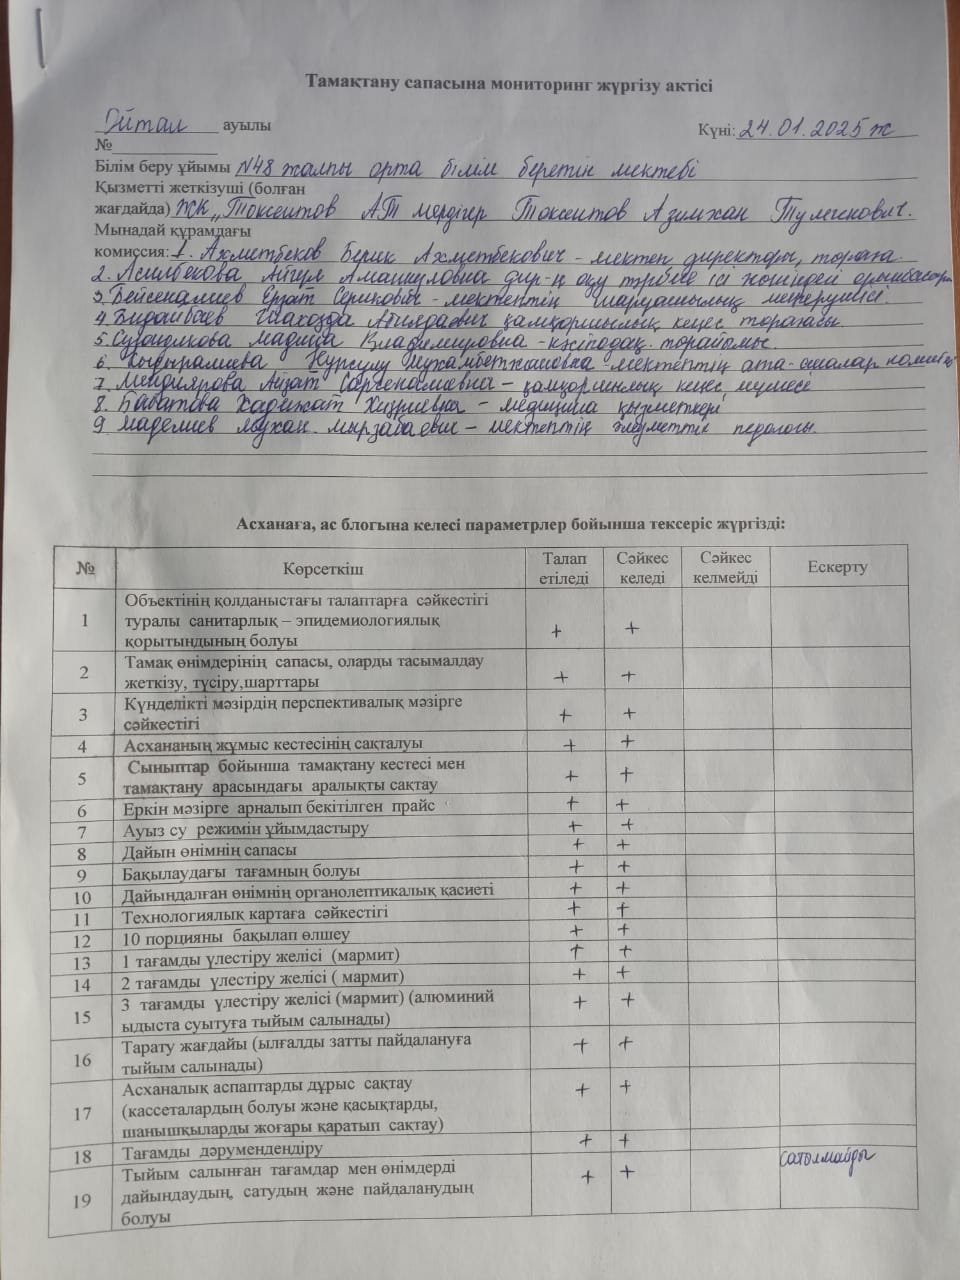 Тамақтану сапасына мониторинг жүргізу актісі
Ойтал ауылы
Күні: 24.01.2025 ж
№
Білім беру ұйымы №48 жалпы орта білім беретін мектебі
Қызметті жеткізуші (болған
жағдайда) ЖК „Токсеитов АТ мердігер Токсеитов Азимхан Тулегенович.
Мынадай құрамдағы
комиссия: 1. Ахметбеков Берик Ахметбекович - мектеп директоры, төраға.
2. Асилбекова Айгул Амашуловна дир-ң оқу тәрбие ісі жөніндегі орынбасары
3. Бейсеналиев Ерзат Серикович - мектептің шаруашылық меңгерушісі.
4. қамқоршылық кеңес төрағабы.
5. Мадина Владимировна - кәсіподақ. төрайымы.
6. Нурсулу Мухамбетжановна - мектептің ата-аналар комитеті
7. Мендиярова Айзат - қамқоршылық кеңес мүшесі
8. Баватова Хадижат Хизриевна - медицина қызметкері
9 Маделиев Мухан. Мырзабаевич - мектептің әлеуметтік педагогы.
Асханаға, ас блогына келесі параметрлер бойынша тексеріс жүргізді:
№ Көрсеткіш Талап етіледі Сәйкес келеді Сәйкес келмейді Ескерту
1 Объектінің қолданыстағы талаптарға сәйкестігі
туралы санитарлық – эпидемиологиялық
қорытындының болуы + +
2 Тамақ өнімдерінің сапасы, оларды тасымалдау
жеткізу, түсіру,шарттары + +
3 Күнделікті мәзірдің перспективалық мәзірге
сәйкестігі + +
4 Асхананың жұмыс кестесінің сақталуы + +
5 Сыныптар бойынша тамақтану кестесі мен
тамақтану арасындағы аралықты сақтау + +
6 Еркін мәзірге арналып бекітілген прайс + +
7 Ауыз су режимін ұйымдастыру + +
8 Дайын өнімнің сапасы + +
9 Бақылаудағы тағамның болуы + +
10 Дайындалған өнімнің органолептикалық қасиеті + +
11 Технологиялық картаға сәйкестігі + +
12 10 порцияны бақылап өлшеу + +
13 1 тағамды үлестіру желісі (мармит) + +
14 2 тағамды үлестіру желісі ( мармит) + +
15 3 тағамды үлестіру желісі (мармит) (алюминий
ыдыста суытуға тыйым салынады) + +
16 Тарату жағдайы (ылғалды затты пайдалануға
тыйым салынады) + +
17 Асханалық аспаптарды дұрыс сақтау
(кассеталардың болуы және қасықтарды,
шанышқыларды жоғары қаратып сақтау) + +
18 Тағамды дәрумендендіру + +
19 Тыйым салынған тағамдар мен өнімдерді
дайындаудың, сатудың және пайдаланудың
болуы + + сатылмайды